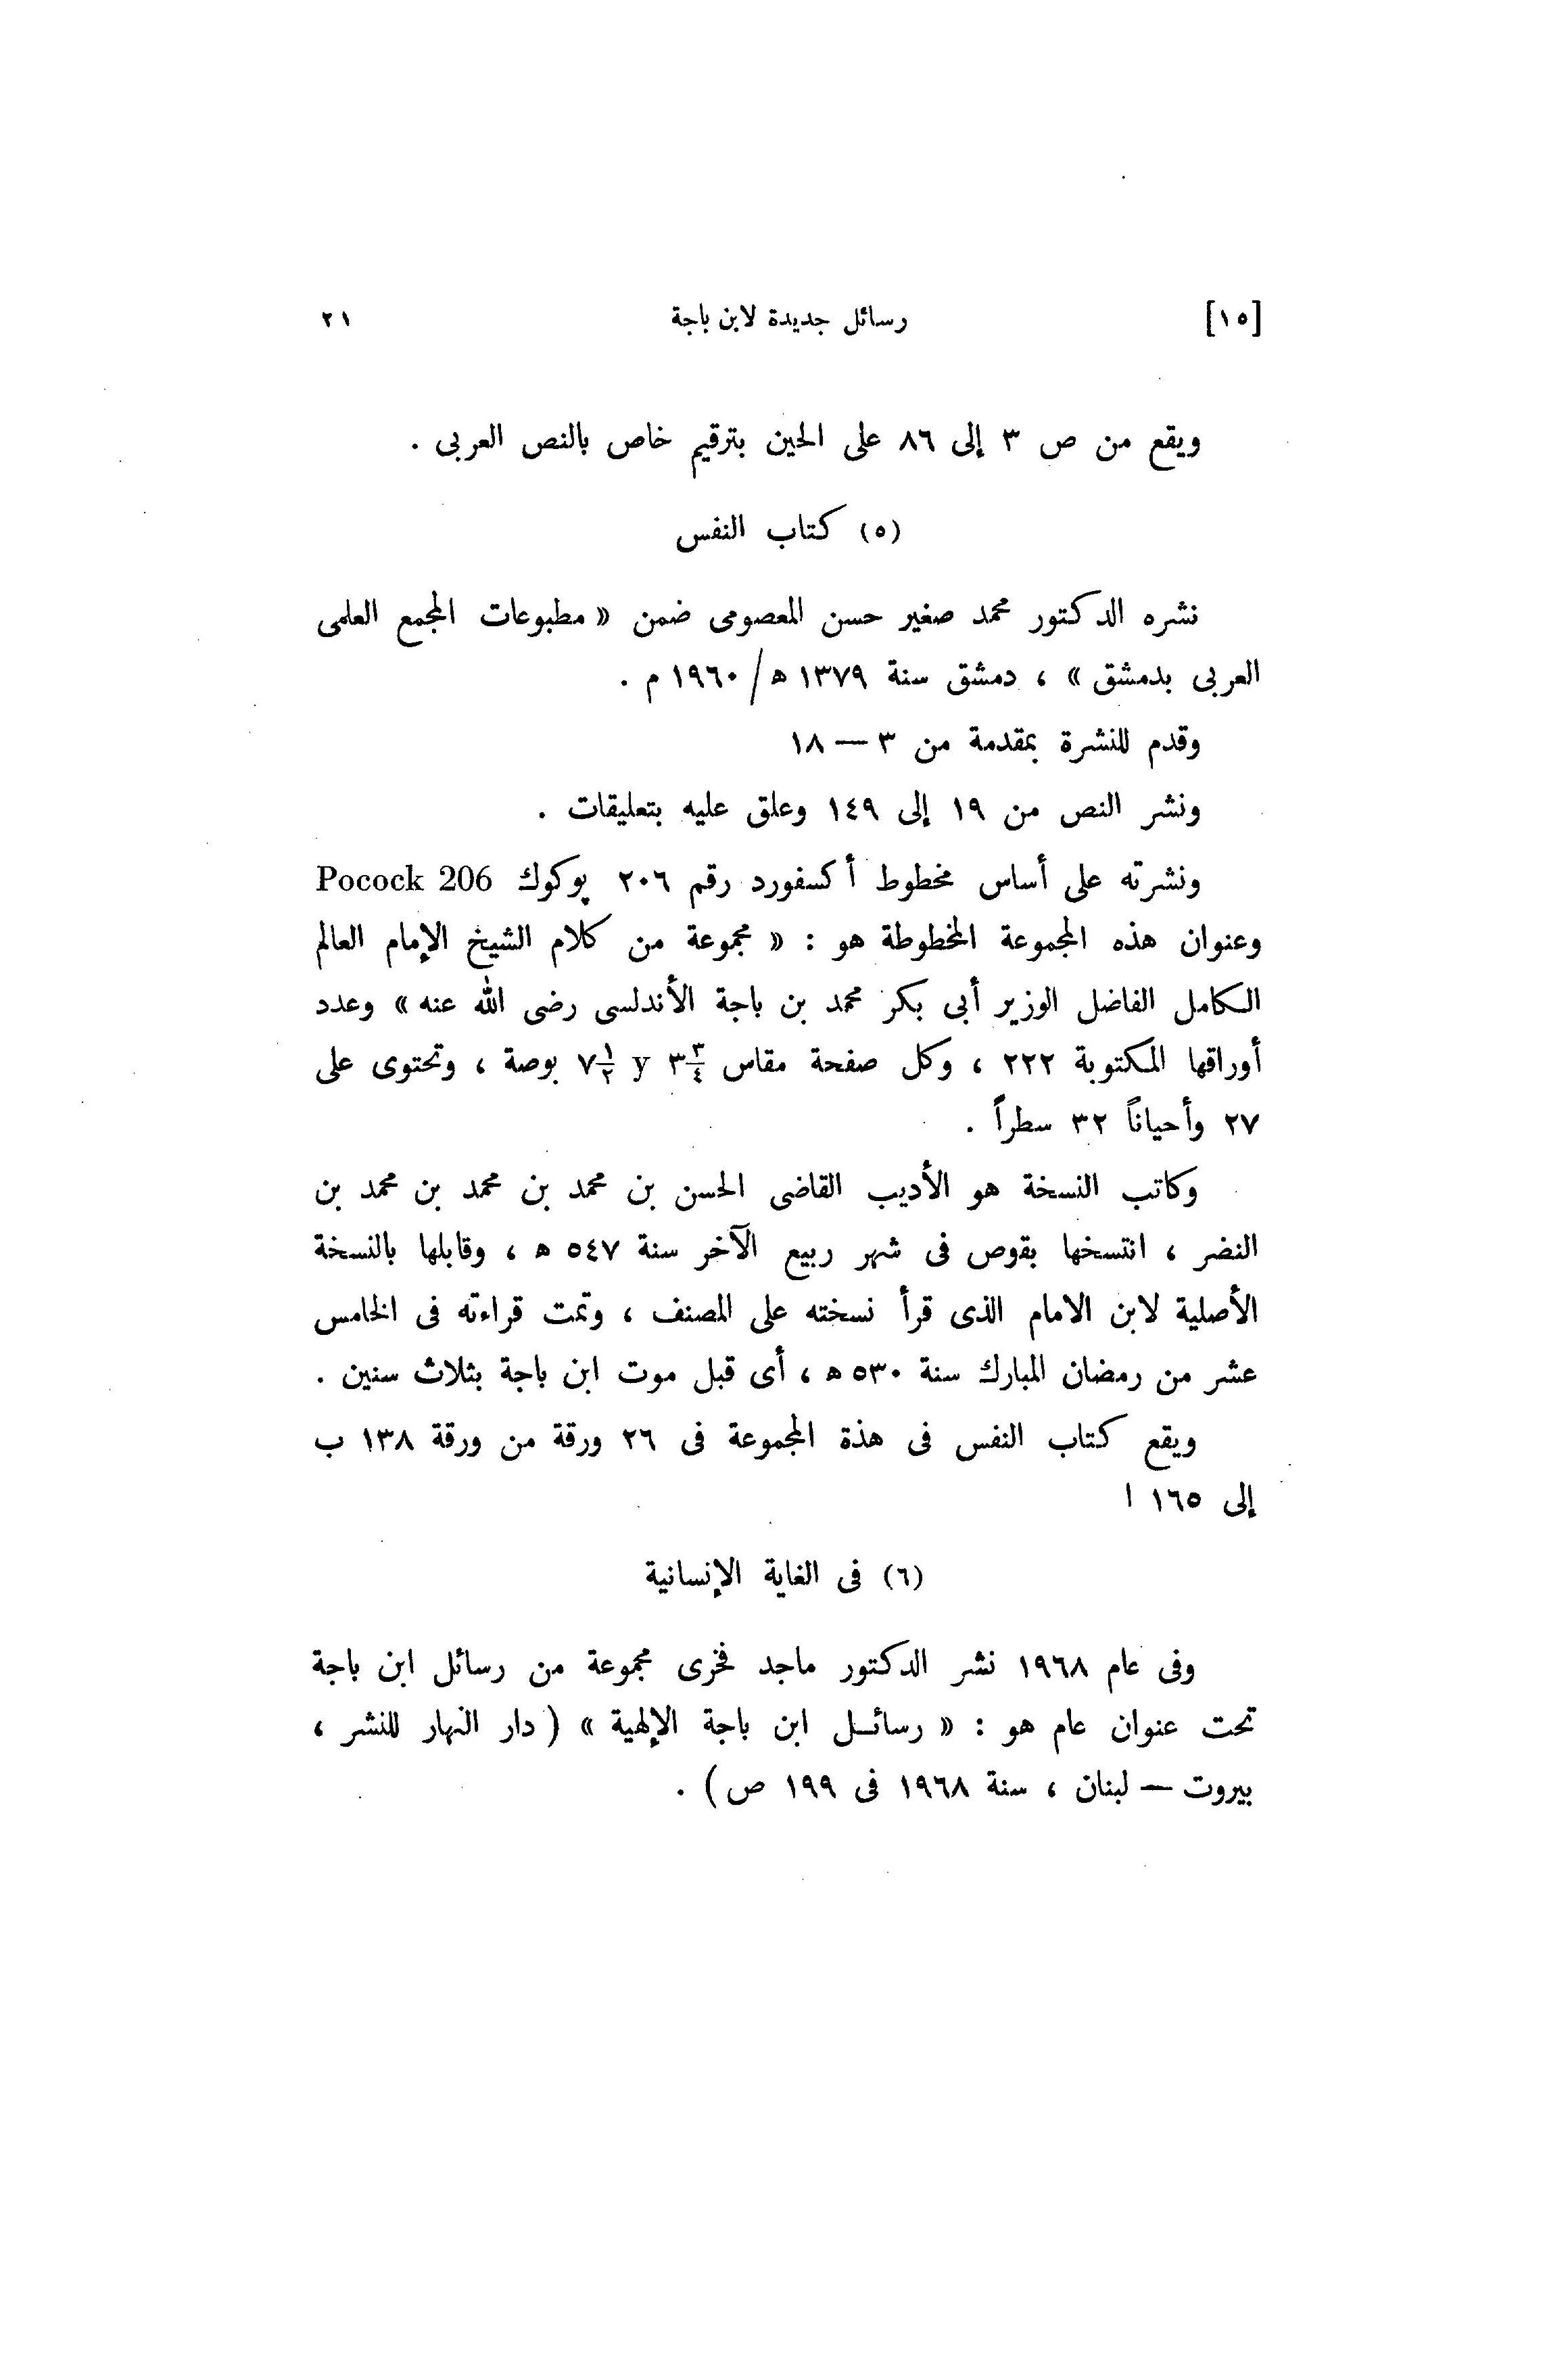 [١٥] رسائل جديدة لابن باجة ٢١
ويقع من ص ٣ إلى ٨٦ على الحين بترقيم خاص بالنص العربى .
(٥) كتاب النفس
نشره الدكتور محمد صغير حسن المعصومى ضمن « مطبوعات المجمع العلمى
العربى بدمشق » ، دمشق سنة ١٣٧٩ ﻫ / ١٩٦٠ م .
وقدم للنشرة بمقدمة من ٣ — ١٨
ونشر النص من ١٩ إلى ١٤٩ وعلق عليه بتعليقات .
ونشرته على أساس مخطوط أكسفورد رقم ٢٠٦ پوكوك Pocock 206
وعنوان هذه المجموعة المخطوطة هو : « مجموعة من كلام الشيخ الإمام العالم
الكامل الفاضل الوزير أبى بكر محمد بن باجة الأندلسى رضى الله عنه » وعدد
أوراقها المكتوبة ٢٢٢ ، وكل صفحة مقاس ٣ ٣/٤ y ٧ ١/٢ بوصة ، وتحتوى على
٢٧ وأحياناً ٣٢ سطراً .
وكاتب النسخة هو الأديب القاضى الحسن بن محمد بن محمد بن محمد بن
النضر ، انتسخها بقوص فى شهر ربيع الآخر سنة ٥٤٧ ﻫ ، وقابلها بالنسخة
الأصلية لابن الامام الذى قرأ نسخته على المصنف ، وتمت قراءته فى الخامس
عشر من رمضان المبارك سنة ٥٣٠ ﻫ ، أى قبل موت ابن باجة بثلاث سنين .
ويقع كتاب النفس فى هذة المجموعة فى ٢٦ ورقة من ورقة ١٣٨ ب
إلى ١٦٥ ا
(٦) فى الغاية الإنسانية
وفى عام ١٩٦٨ نشر الدكتور ماجد فخرى مجموعة من رسائل ابن باجة
تحت عنوان عام هو : « رسائــل ابن باجة الإلهية » ( دار النهار للنشر ،
بيروت — لبنان ، سنة ١٩٦٨ فى ١٩٩ ص ) .